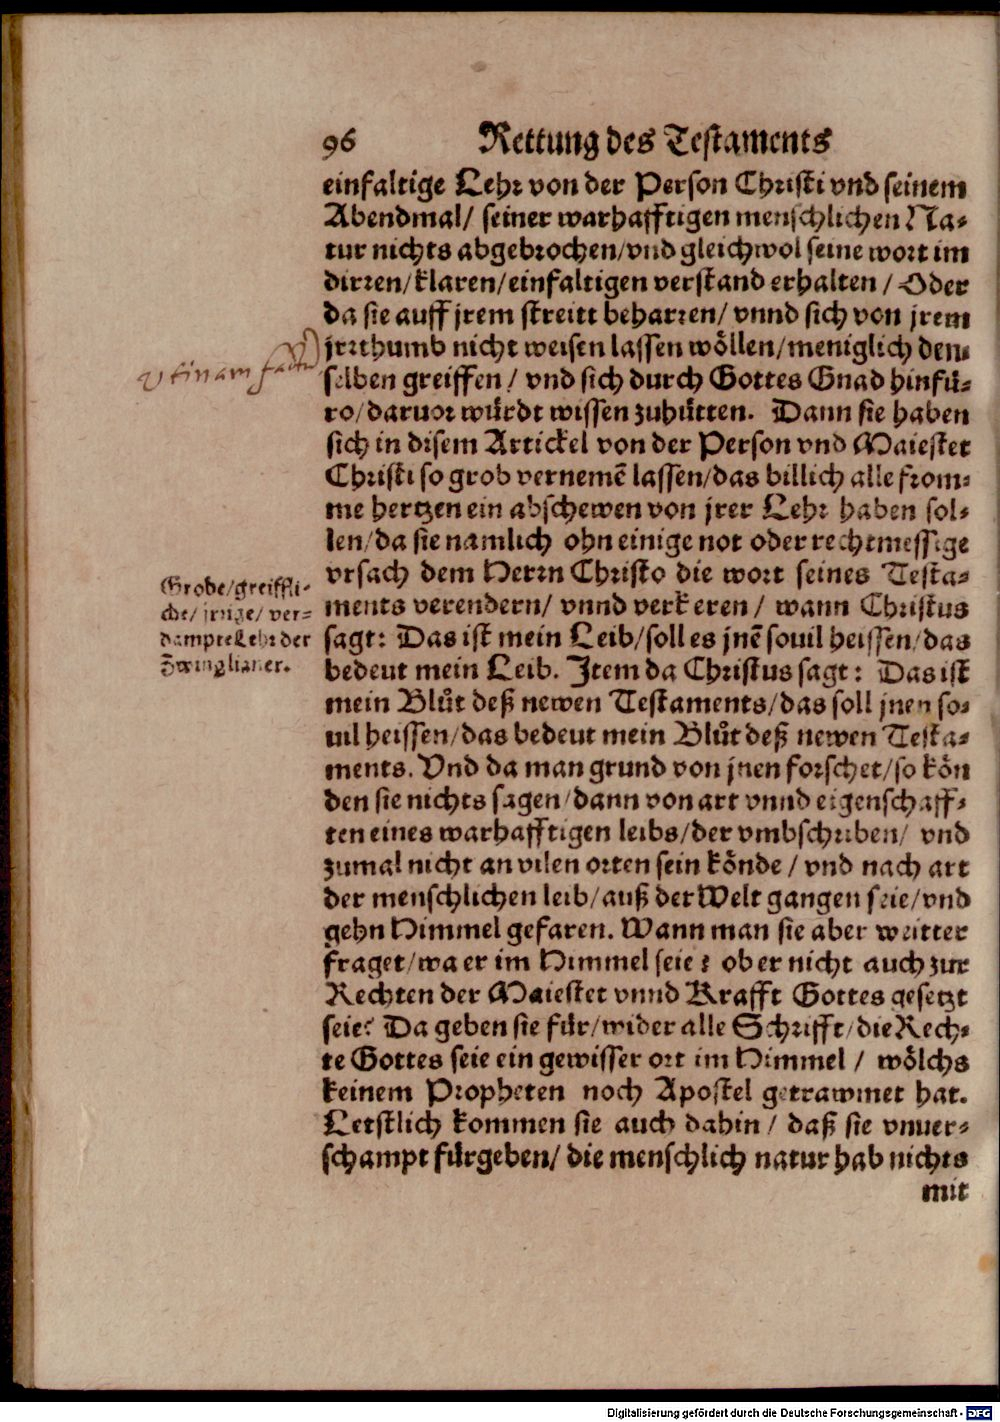 96 Rettung des Testaments
einfaltige Lehr von der Person Christi vnd seinem
Abendmal/ seiner warhafftigen menschlichen Na-
tur nichts abgebrochen/vnd gleichwol seine wort im
dirren/klaren/einfaltigen verstand erhalten / Oder
da sie auff jrem streitt beharren/ vnnd sich von jrem
jrrthumb nicht weisen lassen wöllen/meniglich den-
selben greiffen / vnd sich durch Gottes Gnad hinfü-
ro/daruor würdt wissen zuhütten. Dann sie haben
sich in disem Artickel von der Person vnd Maiestet
Christi so grob vernemē lassen/das billich alle from-
me hertzen ein abschewen von jrer Lehr haben sol-
len/da sie namlich ohn einige not oder rechtmessige
vrsach dem Herrn Christo die wort seines Testa-
ments verendern/ vnnd verkeren / wann Christus
sagt: Das ist mein Leib/soll es jnē souil heissen/das
bedeut mein Leib. Item da Christus sagt: Das ist
mein Blůt deß newen Testaments/das soll jnen so-
uil heissen/das bedeut mein Blůt deß newen Testa-
ments. Vnd da man grund von jnen forschet/so kön
den sie nichts sagen/dann von art vnnd eigenschaff-
ten eines warhafftigen leibs/der vmbschriben/ vnd
zumal nicht an vilen orten sein könde / vnd nach art
der menschlichen leib/auß der Welt gangen seie/vnd
gehn Himmel gefaren. Wann man sie aber weitter
fraget/wa er im Himmel seie? ob er nicht auch zur
Rechten der Maiestet vnnd Krafft Gottes gesetzt
seie? Da geben sie für/wider alle Schrifft/die Rech-
te Gottes seie ein gewisser ort im Himmel / wölchs
keinem Propheten noch Apostel getrawmet hat.
Letstlich kommen sie auch dahin / daß sie vnuer-
schampt fürgeben/ die menschlich natur hab nichts
mit
Vtinam
Grobe/greiffli-
che/jrrige/ ver-
dampte Lehr der
Zwinglianer.
Digitalisierung gefördert durch die Deutsche Forschungsgemeinschaft - DFG